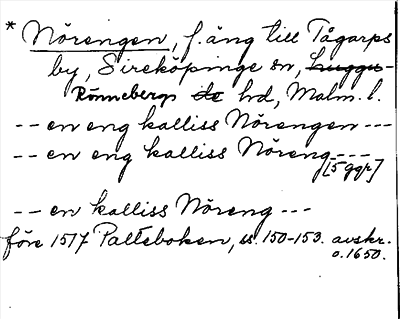 * Nörengen, f. äng till Tågarps
by, Sireköpinge sn, Luggu-
Rönnebergs de hd, Malm. l.
-- en eng kalliss Nörengen ---
-- en eng kalliss Nöreng ---
[5 ggr]
-- en kalliss Nöreng ---
före 1517 Palteboken, ss. 150-153. avskr.
o. 1650.